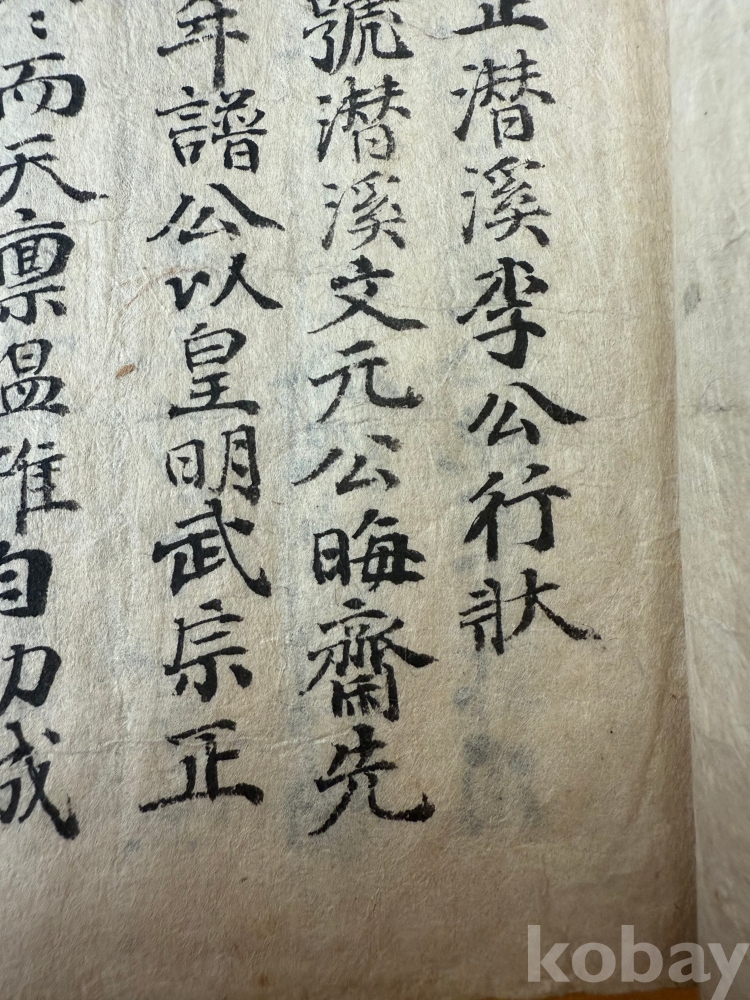 正潜溪李公行狀
號潜溪文元公晦齋先
年譜公以皇明武宗正
而天禀温自成
kobay